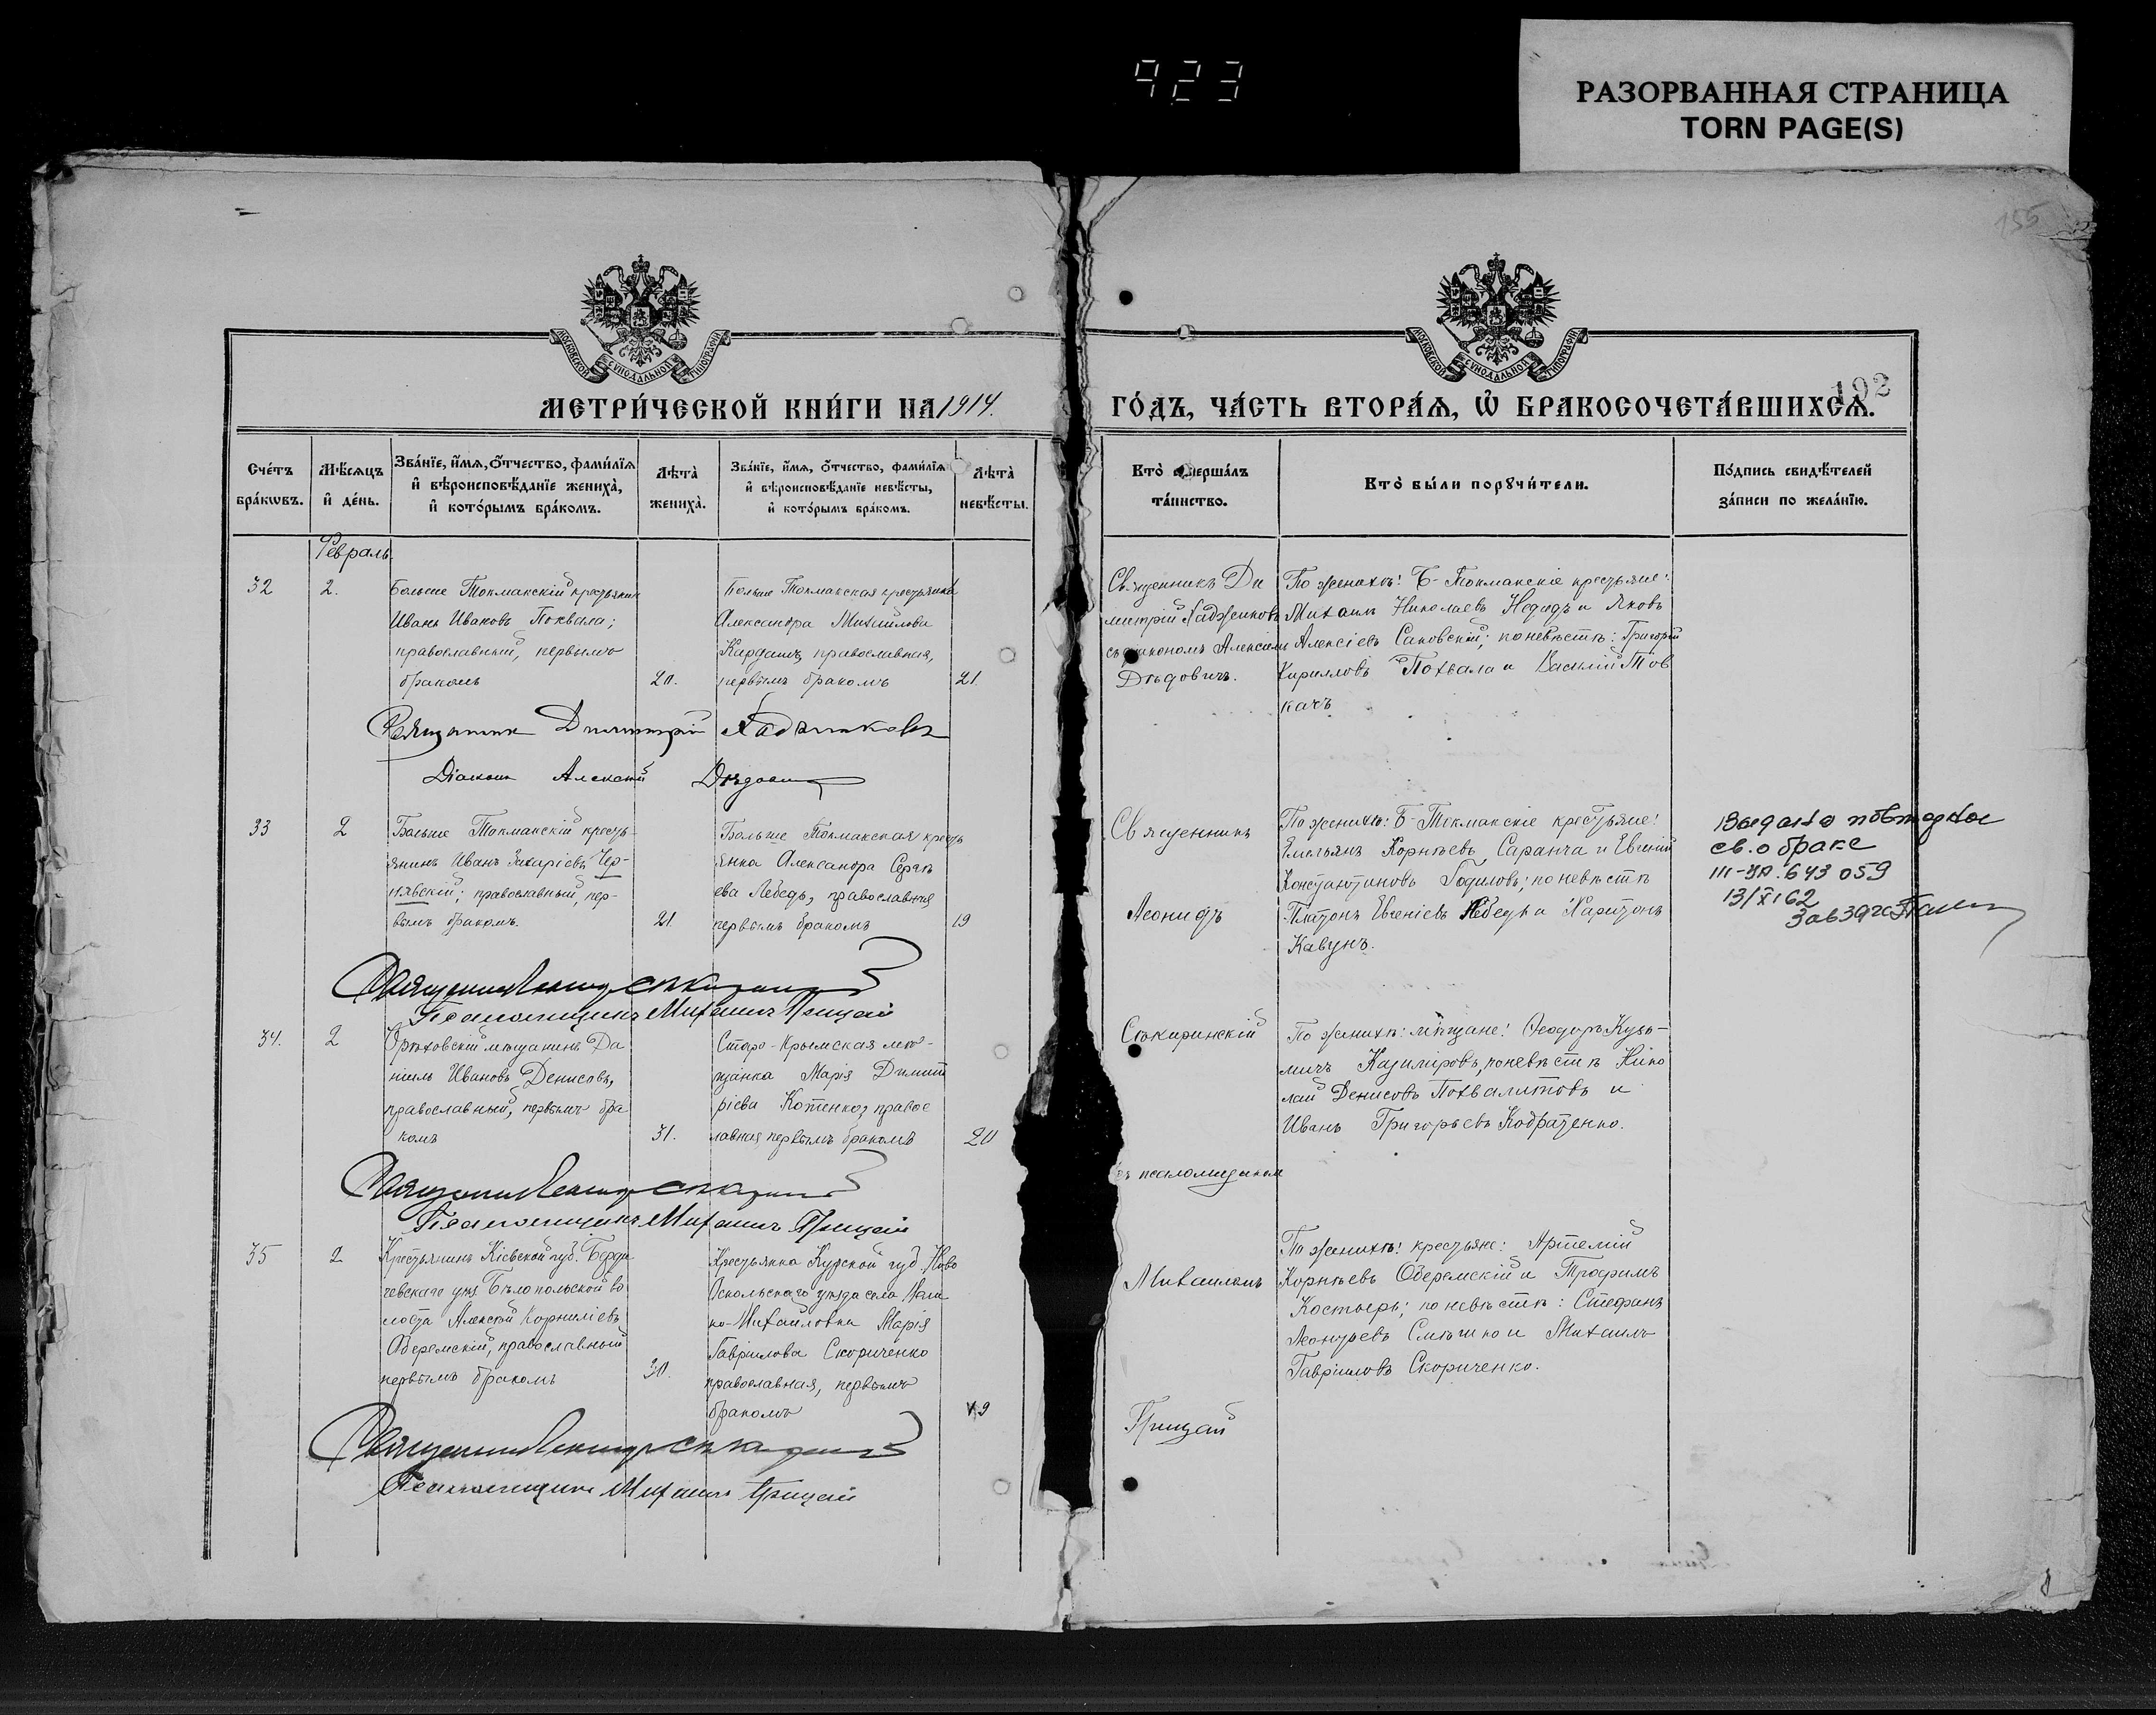 423
РАЗОРВАННАЯ СТРАНИЦА
TORN PAGE(S)
155
МОСКОВСКОЙ СѴНОДАЛЬНОЙ ТИПОГРАФІИ
МОСКОВСКОЙ СѴНОДАЛЬНОЙ ТИПОГРАФІИ
192
МЕТРИ́ЧЕСКОЙ КНИ́ГИ НА 1914.
ГО́ДЪ, ЧА́СТЬ ВТОРА́Ѧ, Ѽ БРАКОСОЧЕТА́ВШИХСѦ.
Сче́тъ бра́кѡвъ.
Мѣ́сѧцъ и҆ де́нь.
Зва́нїе, и҆́мѧ, ѻ҆́тчество, фами́лїѧ и҆ вѣроисповѣ́данїе жениха̀, и҆ кото́рымъ бра́комъ.
Лѣта̀ жениха̀.
Зва́нїе, и҆́мѧ, ѻ҆́тчество, фами́лїѧ и҆ вѣроисповѣ́данїе невѣ́сты, и҆ кото́рымъ бра́комъ.
Лѣта̀ невѣ́сты.
Кто̀ соверша́лъ та́инство.
Кто̀ бы́ли порꙋчи́тели.
По́дпись свидѣ́телей за́писи по жела́нїю.
Февраль.
32
2.
Больше Токмакскій крестьянин
Иванъ Ивановъ Похвала;
православный, первымъ
бракомъ
20.
Больше Токмакская крестьянка
Александра Михайлова
Кардашъ, православная,
первымъ бракомъ
21.
Священникъ Ди
митрій Хаджиновъ
съ діакономъ Алексіемъ
Дѣдовичъ.
По женихѣ: Б-Токмакскіе крестьяне:
Михаилъ Николаевъ Недидъ и Яковъ
Алексіевъ Саковскій; по невѣстѣ: Григорій
Кирилловъ Похвала и Василій Тов
качъ
Священник Димитрій Хаджиковъ
Діаконъ Алексій Дѣдович
33
2
Больше Токмакскій кресть-
янинъ Иванъ Захаріевъ Чер-
нявскій; православный, пер-
вымъ бракомъ.
21.
Больше Токмакская кресть
янка Александра Сергѣ
ева Лебедь, православная
первымъ бракомъ
19
Священникъ
Леонидъ
По женихѣ: Б-Токмакскіе крестьяне:
Емельянъ Корнѣевъ Саранча и Евгеній
Константиновъ Годиловъ; по невѣстѣ
Платонъ Евгеніевъ Лебедь и Харитонъ
Кавунъ.
Выдано повторное
св. о браке
III-УР. 643 059
13/XI 62
Зав Загс
Священник Леонид Сѣкиринскій
Псаломщикъ Михаилъ Грицай
34.
2
Орѣховскій мѣщанинъ Да
ніилъ Ивановъ Денисовъ,
православный, первымъ бра
комъ
31.
Старо-Крымская мѣ-
щанка Марія Димит
ріева Котенко, правос
лавная, первымъ бракомъ
20
Сѣкиринскій
съ псаломщиком
По женихѣ: мѣщане: Ѳеодоръ Кузь-
мичъ Казиміровъ, по невѣстѣ Нико
лай Денисовъ Похвалитовъ и
Иванъ Григорьевъ Кодратенко.
Священник Леонид Сѣкиринскій
Псаломщикъ Михаилъ Грицай
35
2
Крестьянинъ Кіевской губ. Берди
чевскаго уѣз. Бѣлопольской во
лости Алексѣй Корниліевъ
Оберемскій, православный
первымъ бракомъ
30.
Крестьянка Курской губ. Ново
Оскольскаго уѣзда села
ко-Михайловки Марія
Гавріилова Скориченко
православная, первымъ
бракомъ
19
Михаиломъ
Грицай
По женихѣ: крестьяне: Артемій
Корнѣевъ Оберемскій и Трофимъ
Костырь; по невѣстѣ: Стефанъ
Леонтьевъ Смѣшко и Михаилъ
Гавріиловъ Скориченко.
Священник Леонид Сѣкиринскій
Псаломщикъ Михаилъ Грицай